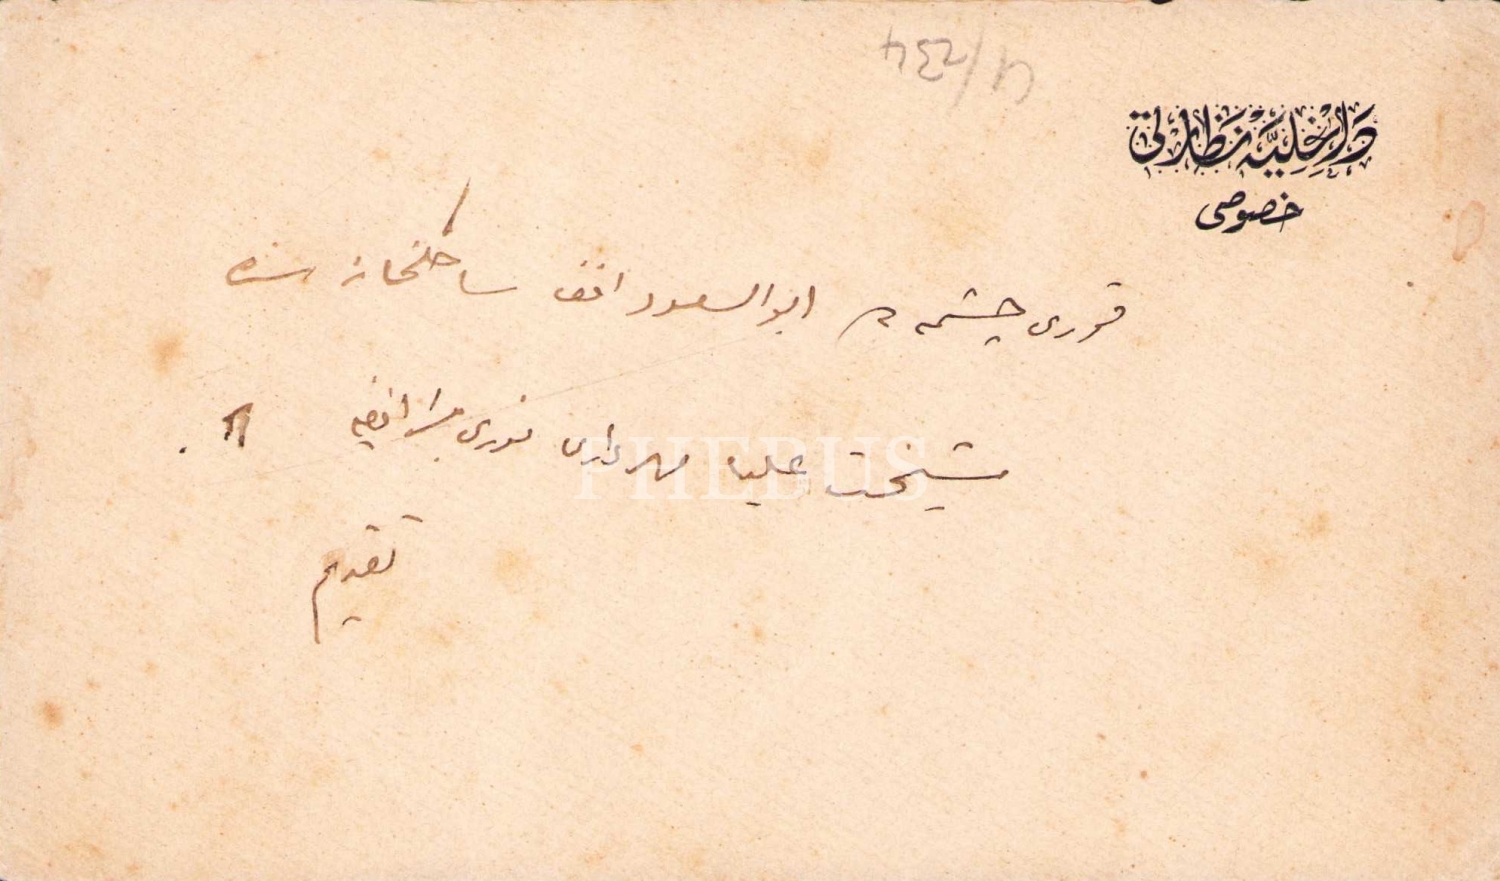 4/234
داخلیه نظارتی
خصوصی
قوری چشمه ده ابو السعود افندی ساحلخانه سنده
مشیخت علیا مهرداری نوری افندی
تقدیم
PHEBUS